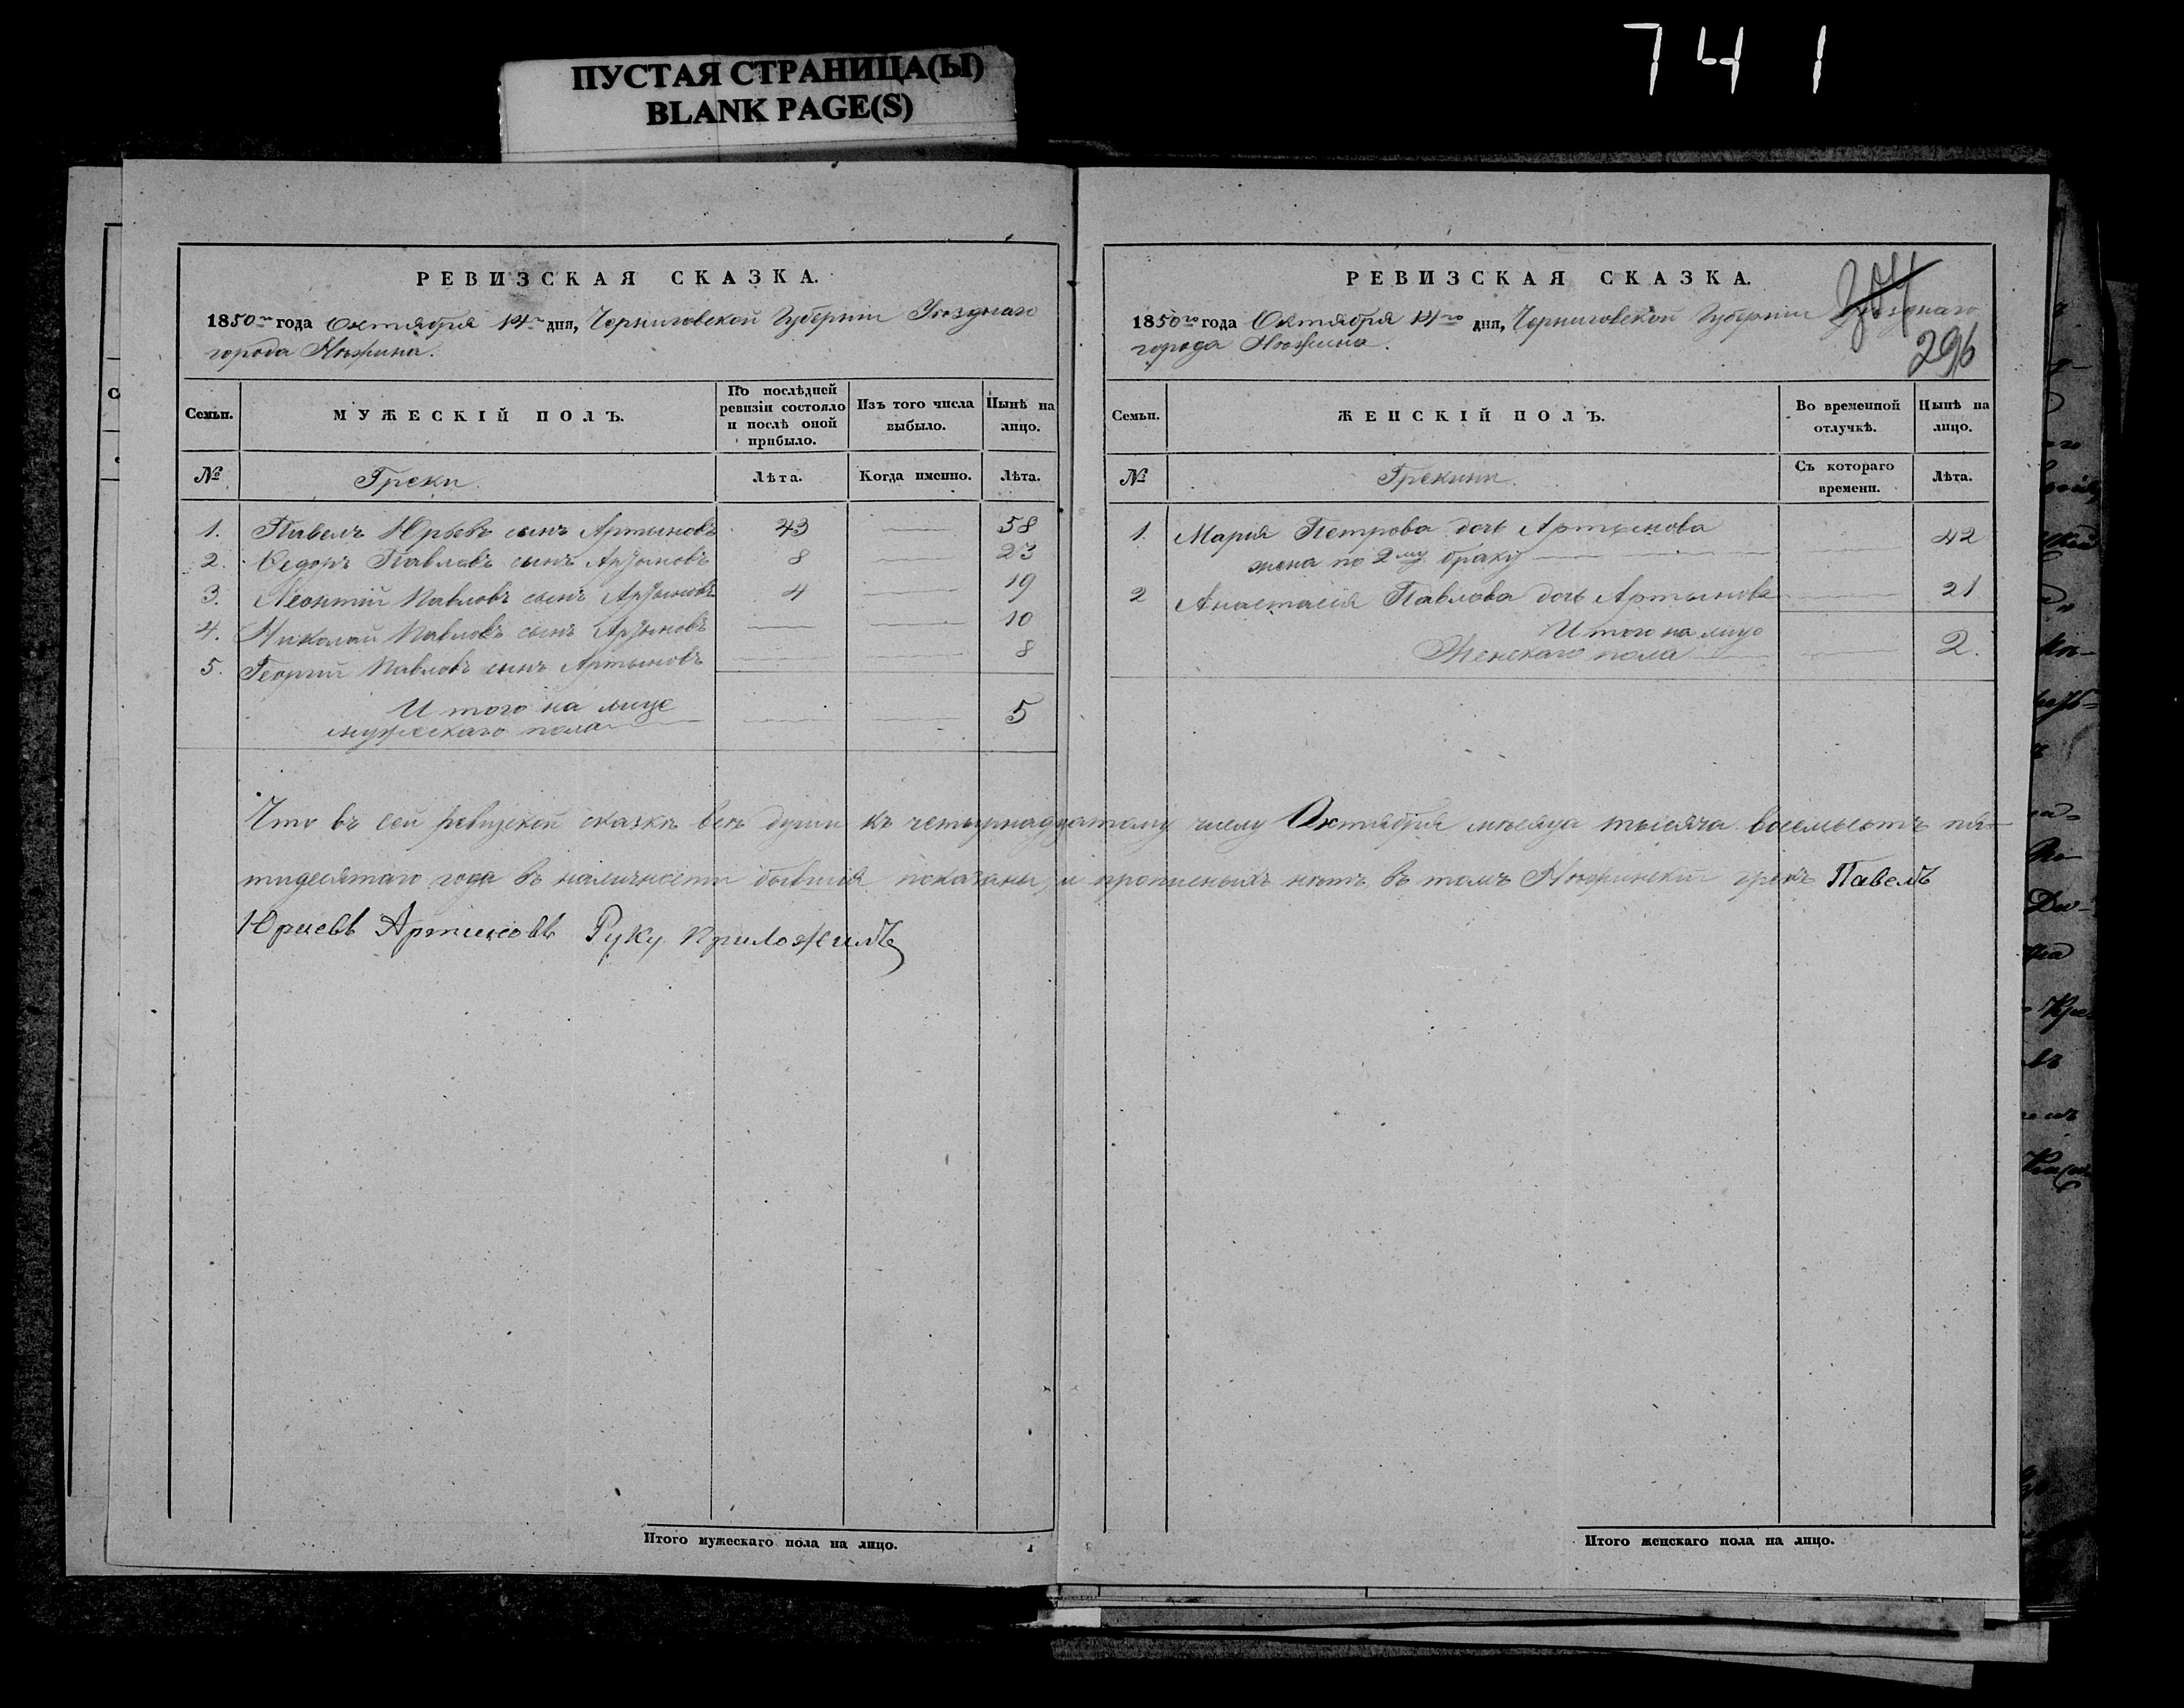 741
ПУСТАЯ СТРАНИЦА(Ы)
BLANK PAGE(S)
РЕВИЗСКАЯ СКАЗКА.
1850го года Октября 14го дня, Черниговской Губернии Уѣзднаго
города Нѣжина.
Семьи. МУЖЕСКІЙ ПОЛЪ. По послѣдней ревизіи состояло и послѣ оной прибыло. Изъ того числа выбыло. Нынѣ на лицо.
№ Греки. Лѣта. Когда именно. Лѣта.
1. Павелъ Юрьевъ сынъ Артыновъ 43 — 58
2. Федоръ Павловъ сынъ Артыновъ 8 — 23
3. Леонтій Павловъ сынъ Артыновъ 4 — 19
4. Николай Павловъ сынъ Артыновъ — — 10
5. Георгій Павловъ сынъ Артыновъ — — 8
Итого на лице
мужескаго пола — — 5
Что въ сей ревизской сказкѣ всѣ души къ четырнадцатому числу Октября мѣсяца тысяча восемьсотъ пя-
тидесятаго года въ наличности бывшія показаны, и прописныхъ нѣтъ, въ томъ Нѣжинскій грекъ Павелъ
Юриевъ Артиновъ Руку приложилъ
Итого мужескаго пола на лицо.
РЕВИЗСКАЯ СКАЗКА.
1850го года Октября 14го дня, Черниговской Губерніи Уѣзднаго
города Нѣжина.
296
Семьи. ЖЕНСКІЙ ПОЛЪ. Во временной отлучкѣ. Нынѣ на лицо.
№ Грекини. Съ котораго времени. Лѣта.
1. Марія Петрова дочь Артынова
жена по 2му браку — — 42
2 Анастасія Павлова дочь Артынова — 21
Итого на лице
Женскаго пола — — 2.
Итого женскаго пола на лицо.